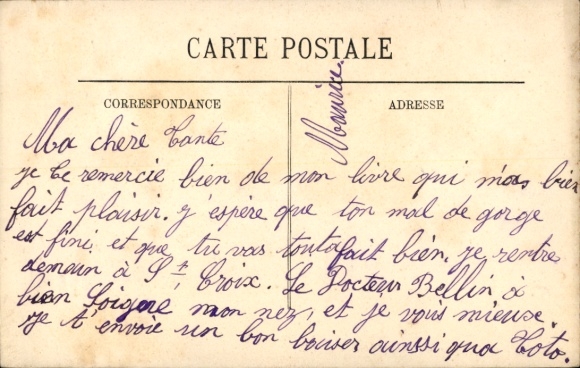 CARTE POSTALE
CORRESPONDANCE
ADRESSE
Ma chère tante
je te remercie bien de mon livre qui m'as bien
fait plaisir. j'espère que ton mal de gorge
est fini, et que tu vas toutafait bien, je rentre
demain à St Croix. Le Docteur Bellin à
bien soigné mon nez, et je vous mieuse.
je t'envoie un bon baiser ainssi qua Toto.
Maurice.